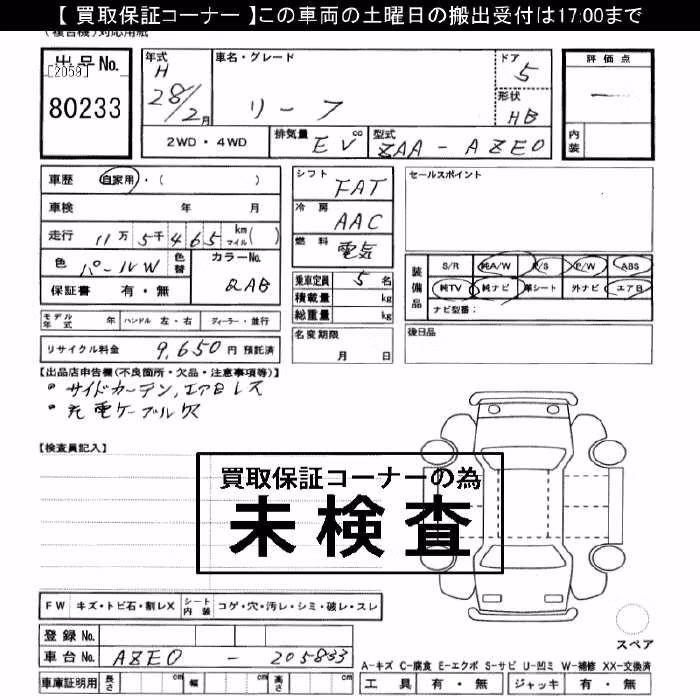 【 買取保証コーナー 】この車両の土曜日の搬出受付は17:00まで
(複合機)対応用紙
出品No. [2059] 80233
年式 H 28/2月
車名・グレード リーフ
ドア 5
形状 HB
評価点 一
内装
2WD・4WD
排気量 EV cc
型式 ZAA-AZEO
車歴 自家用・( )
車検 年 月
走行 11万 5千465 km マイル( )
色 パールW 色替
カラーNo. QAB
保証書 有・無
モデル年式 年 ハンドル 左・右 ディーラー・並行
リサイクル料金 9,650円 預託済
シフト FAT
冷房 AAC
燃料 電気
乗車定員 5名
積載量 kg
総重量 kg
名変期限 月 日
セールスポイント
装備品 S/R 純A/W P/S P/W ABS
純TV 純ナビ 革シート 外ナビ エアB
ナビ型番:
後日品
【出品店申告欄(不良箇所・欠品・注意事項等)】
・サイドカーテン,エアBレス
・充電ケーブル欠
【検査員記入】
買取保証コーナーの為
未検査
FW キズ・トビ石・割レX シート内装 コゲ・穴・汚レ・シミ・破レ・スレ
登録No.
車台No. AZEO - 205833
車庫証明用 長さ cm 幅 cm 高さ cm
スペア
A-キズ C-腐食 E-エクボ S-サビ U-凹ミ W-補修 XX-交換済
工具 有・無 ジャッキ 有・無